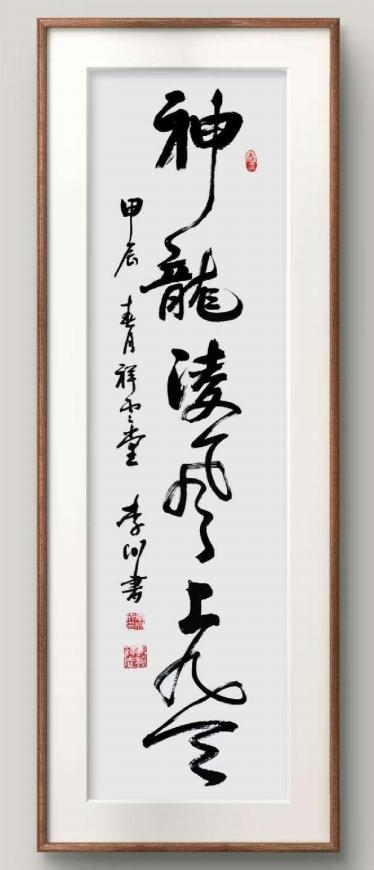 神龍凌風上九天
甲辰 春月祥雲堂 李 書